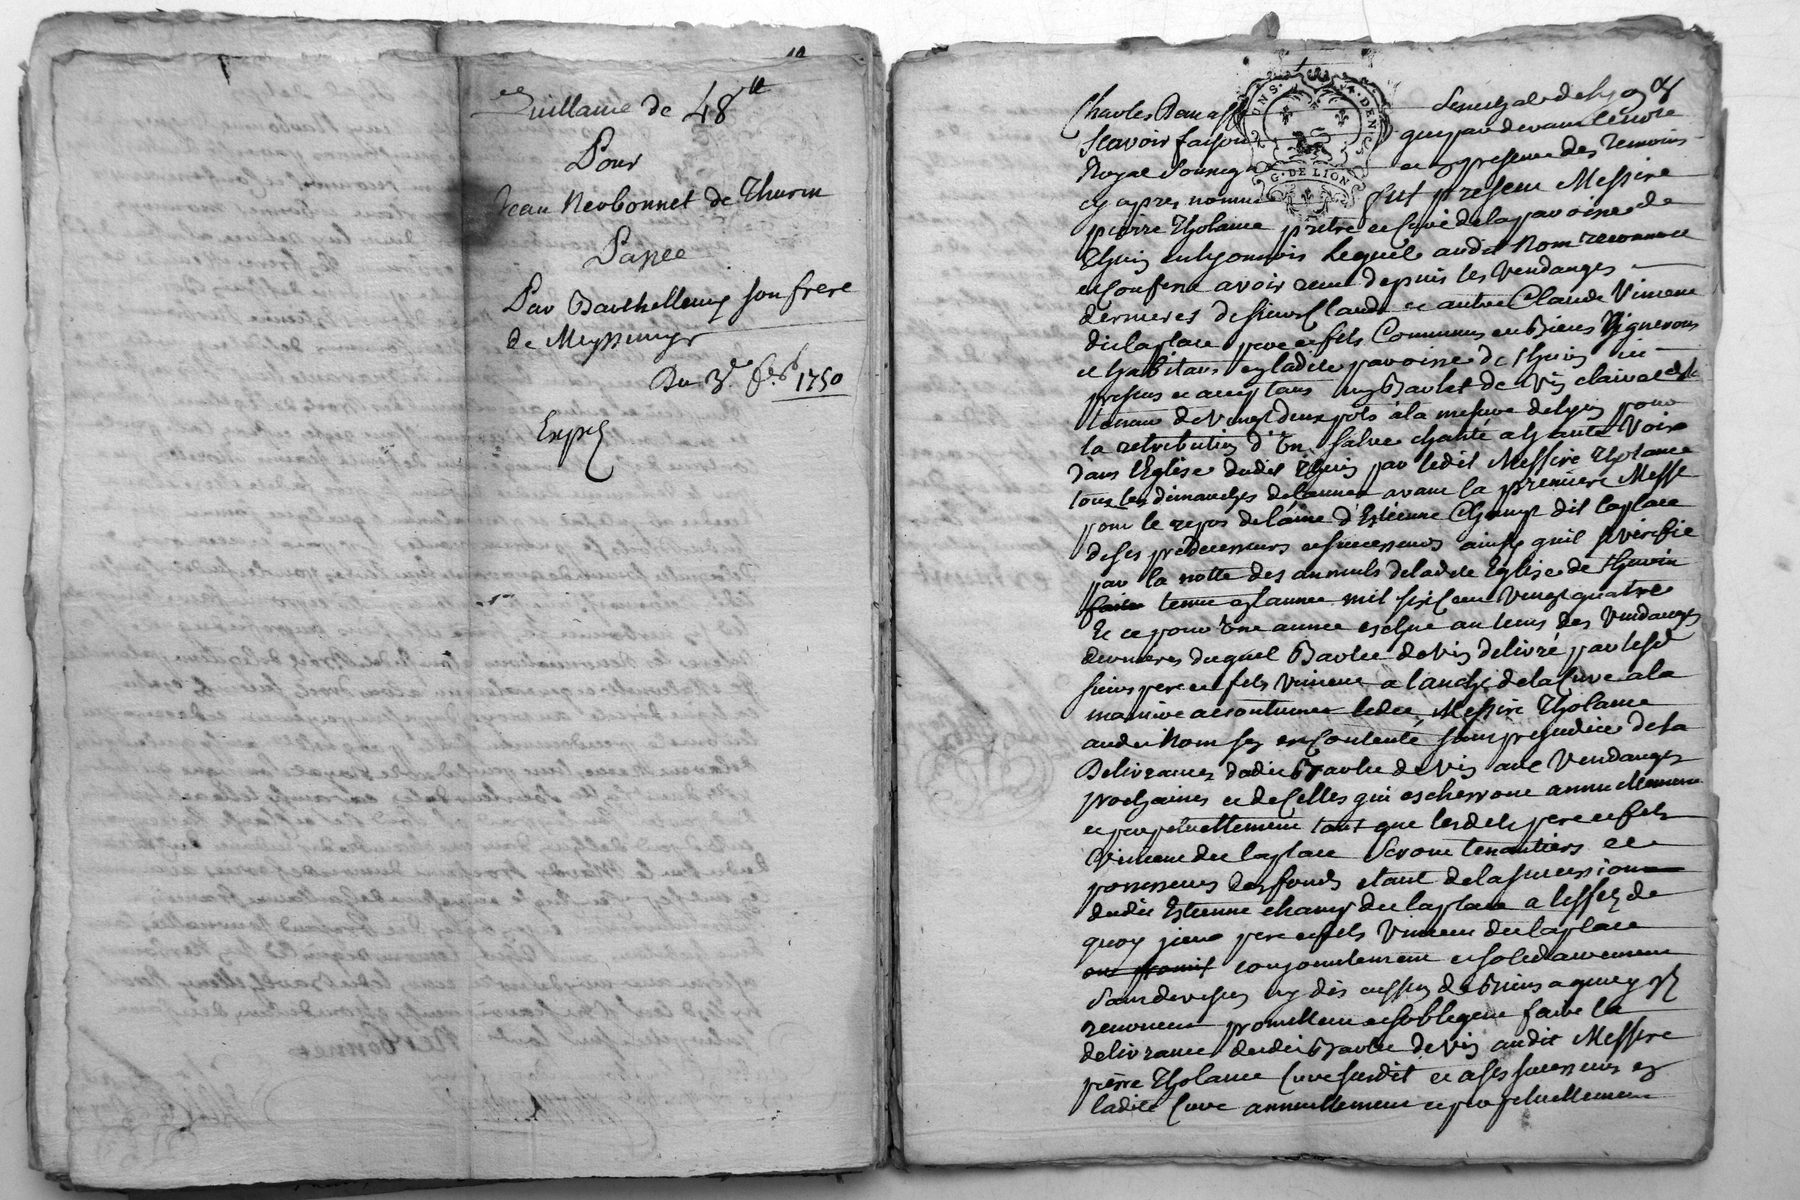 Quittance de 48 ll
Pour
Jean Nerbonnet de Thurin
Passee
Par Barthellemy son frere
de Meyssimy
Du 3e 8bre 1750
Exp
Charles Demasso Seneschal de Lyon
Scavoir faisons que par devant le no.re
Royal soussigné et en presence des temoins
cy apres nommé fut present Messire
pierre Tholance pretre et Curé de la paroisse de
Thurin en Lyonnois Lequel audit Nom reconnoit
et Confesse avoir receu depuis les Vendanges
dernieres de sieurs Claude et autre Claude Vincent
dit laplace pere et fils Communs en Biens Vignerons
et habitans en ladite paroisse de Thurin icy
presens et acceptans un Barlet de vin clairet
tenant de vingt deux pots à la mesure de lyon pour
la retribution d'Un Salve chanté a haute Voix
dans l'Eglise dudit Thurin par ledit Messire Tholance
tous les dimanches de lannee avant la premiere Messe
pour le repos de l'ame d'Estienne Champ dit laplace
de ses predecesseurs et successeurs ainsy quil se vérifie
par la notte des annuels de ladite Eglise de Thurin
faite tenue en lannee mil six cent Vingt quatre
Et ce pour Une année eschue au tems des Vendanges
dernieres duquel Barlet de vin delivré par lesd
sieurs pere et fils Vincent a lanche de la Cuve a la
maniere accoutumee ledit Messire Tholance
audit Nom sen est Contenté sans prejudice de la
Delivrance dudit Barlet de vin aux Vendanges
prochaines et de Celles qui escherront annuellement
et perpetuellement tant que lesdits pere et fils
Vincent dit laplace seront tenantiers et
possesseurs des fonds etant de la succession
dudit Estienne champ dit laplace a leffet de
quoy sieurs pere et fils Vincent dit laplace
ont promis conjointement et solidairement
sans division ny discussion de Biens a quoy ils
renoncent promettent et sobligent faire la
delivrance dudit Barlet de vin audit Messire
pierre Tholance Curé susdit et a ses successeurs en
ladite Cure annuellement et perpetuellement